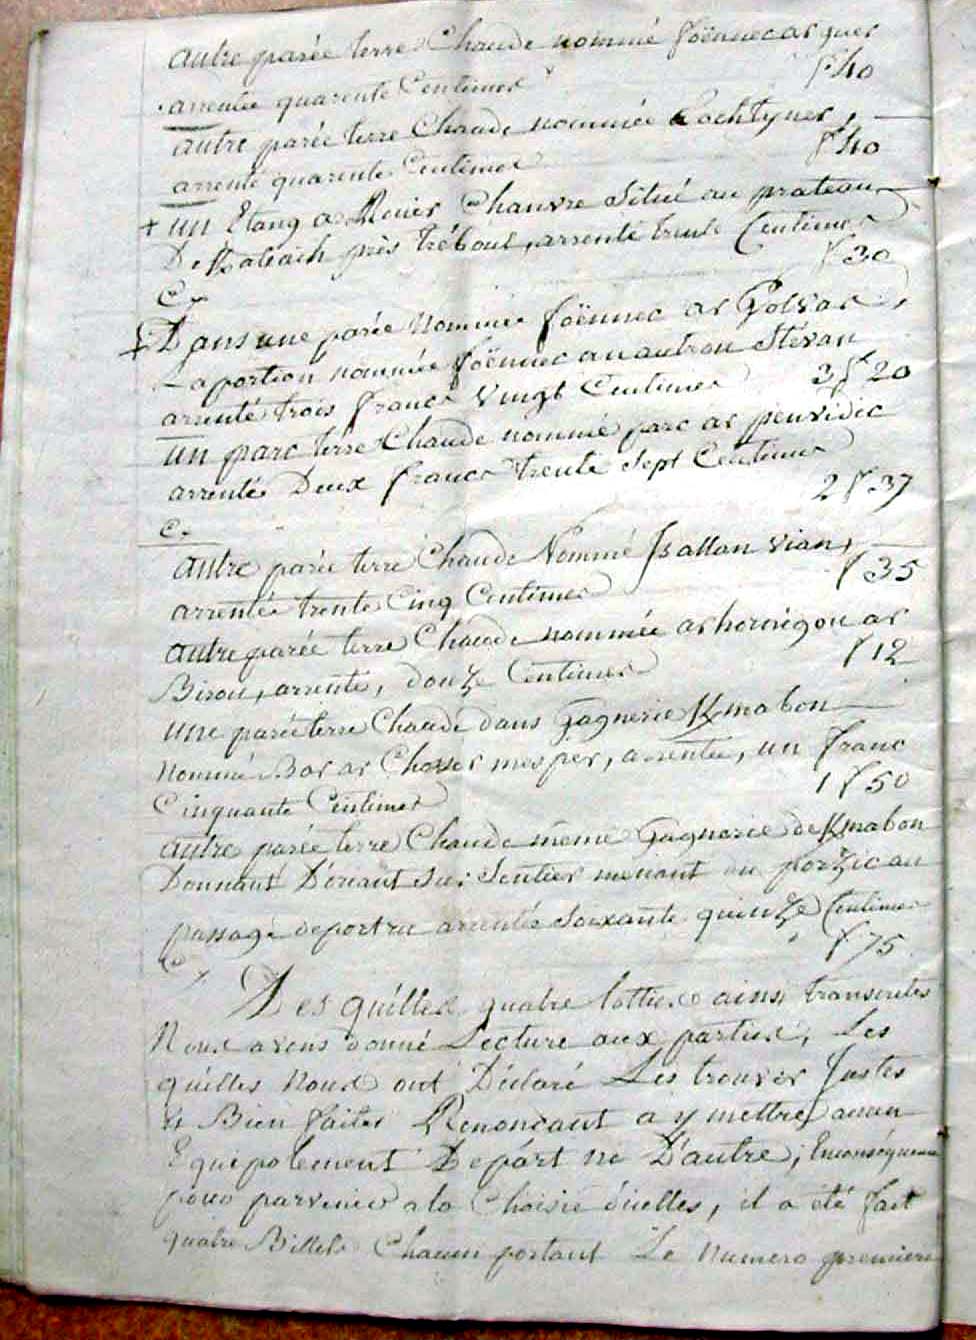 autre parée terre Chaude nommé foënnec ar guer
arrentée quarente Centimes
f 40
autre parée terre Chaude nommée Lochtyner,
arrenté quarente Centimes
f 40
+ un Etang a Rouir Chanvre Situé au prateau
De près tréboul, arrenté trente Centimes
f 30
C.
+ Dans une parée Nommée foënnec ar Golvar,
La portion nommée foënnec an autrou Stévan
arrenté trois francs Vingt Centimes 3 f 20
un parc terre Chaude nommé parc ar penvidic
arrentée Deux francs trente Sept Centimes
2 f 37
C.
autre parée terre Chaude Nommé Ballan vian,
arrentée trente Cinq Centimes
f 35
autre parée terre Chaude nommée ar hornigou ar
Birou, arrenté, douze Centimes
f 12
une parée terre Chaude dans Gagnerie Kmabon
nommé Bar ar mesper, arrentée, un franc
Cinquante Centimes
1 f 50
autre parée terre Chaude même Gagnerie de Kmabon
Donnant D'ouant sur Sentier menant du porzic au
passage de portru arrentée Soixante quinze Centimes
f 75
Des quilles quatre lotties ainsi transcrites
Nous avons donné Lecture aux parties, Les
quilles Nous ont Déclaré Les trouver Justes
et Bien faites Renoncant a y mettre aucun
Equipolement De part ni D'autre; Enconséquence
pour parvenir a la Choisie d'icelles, il a été fait
quatre Billets Chacun portant Le Numero premiere